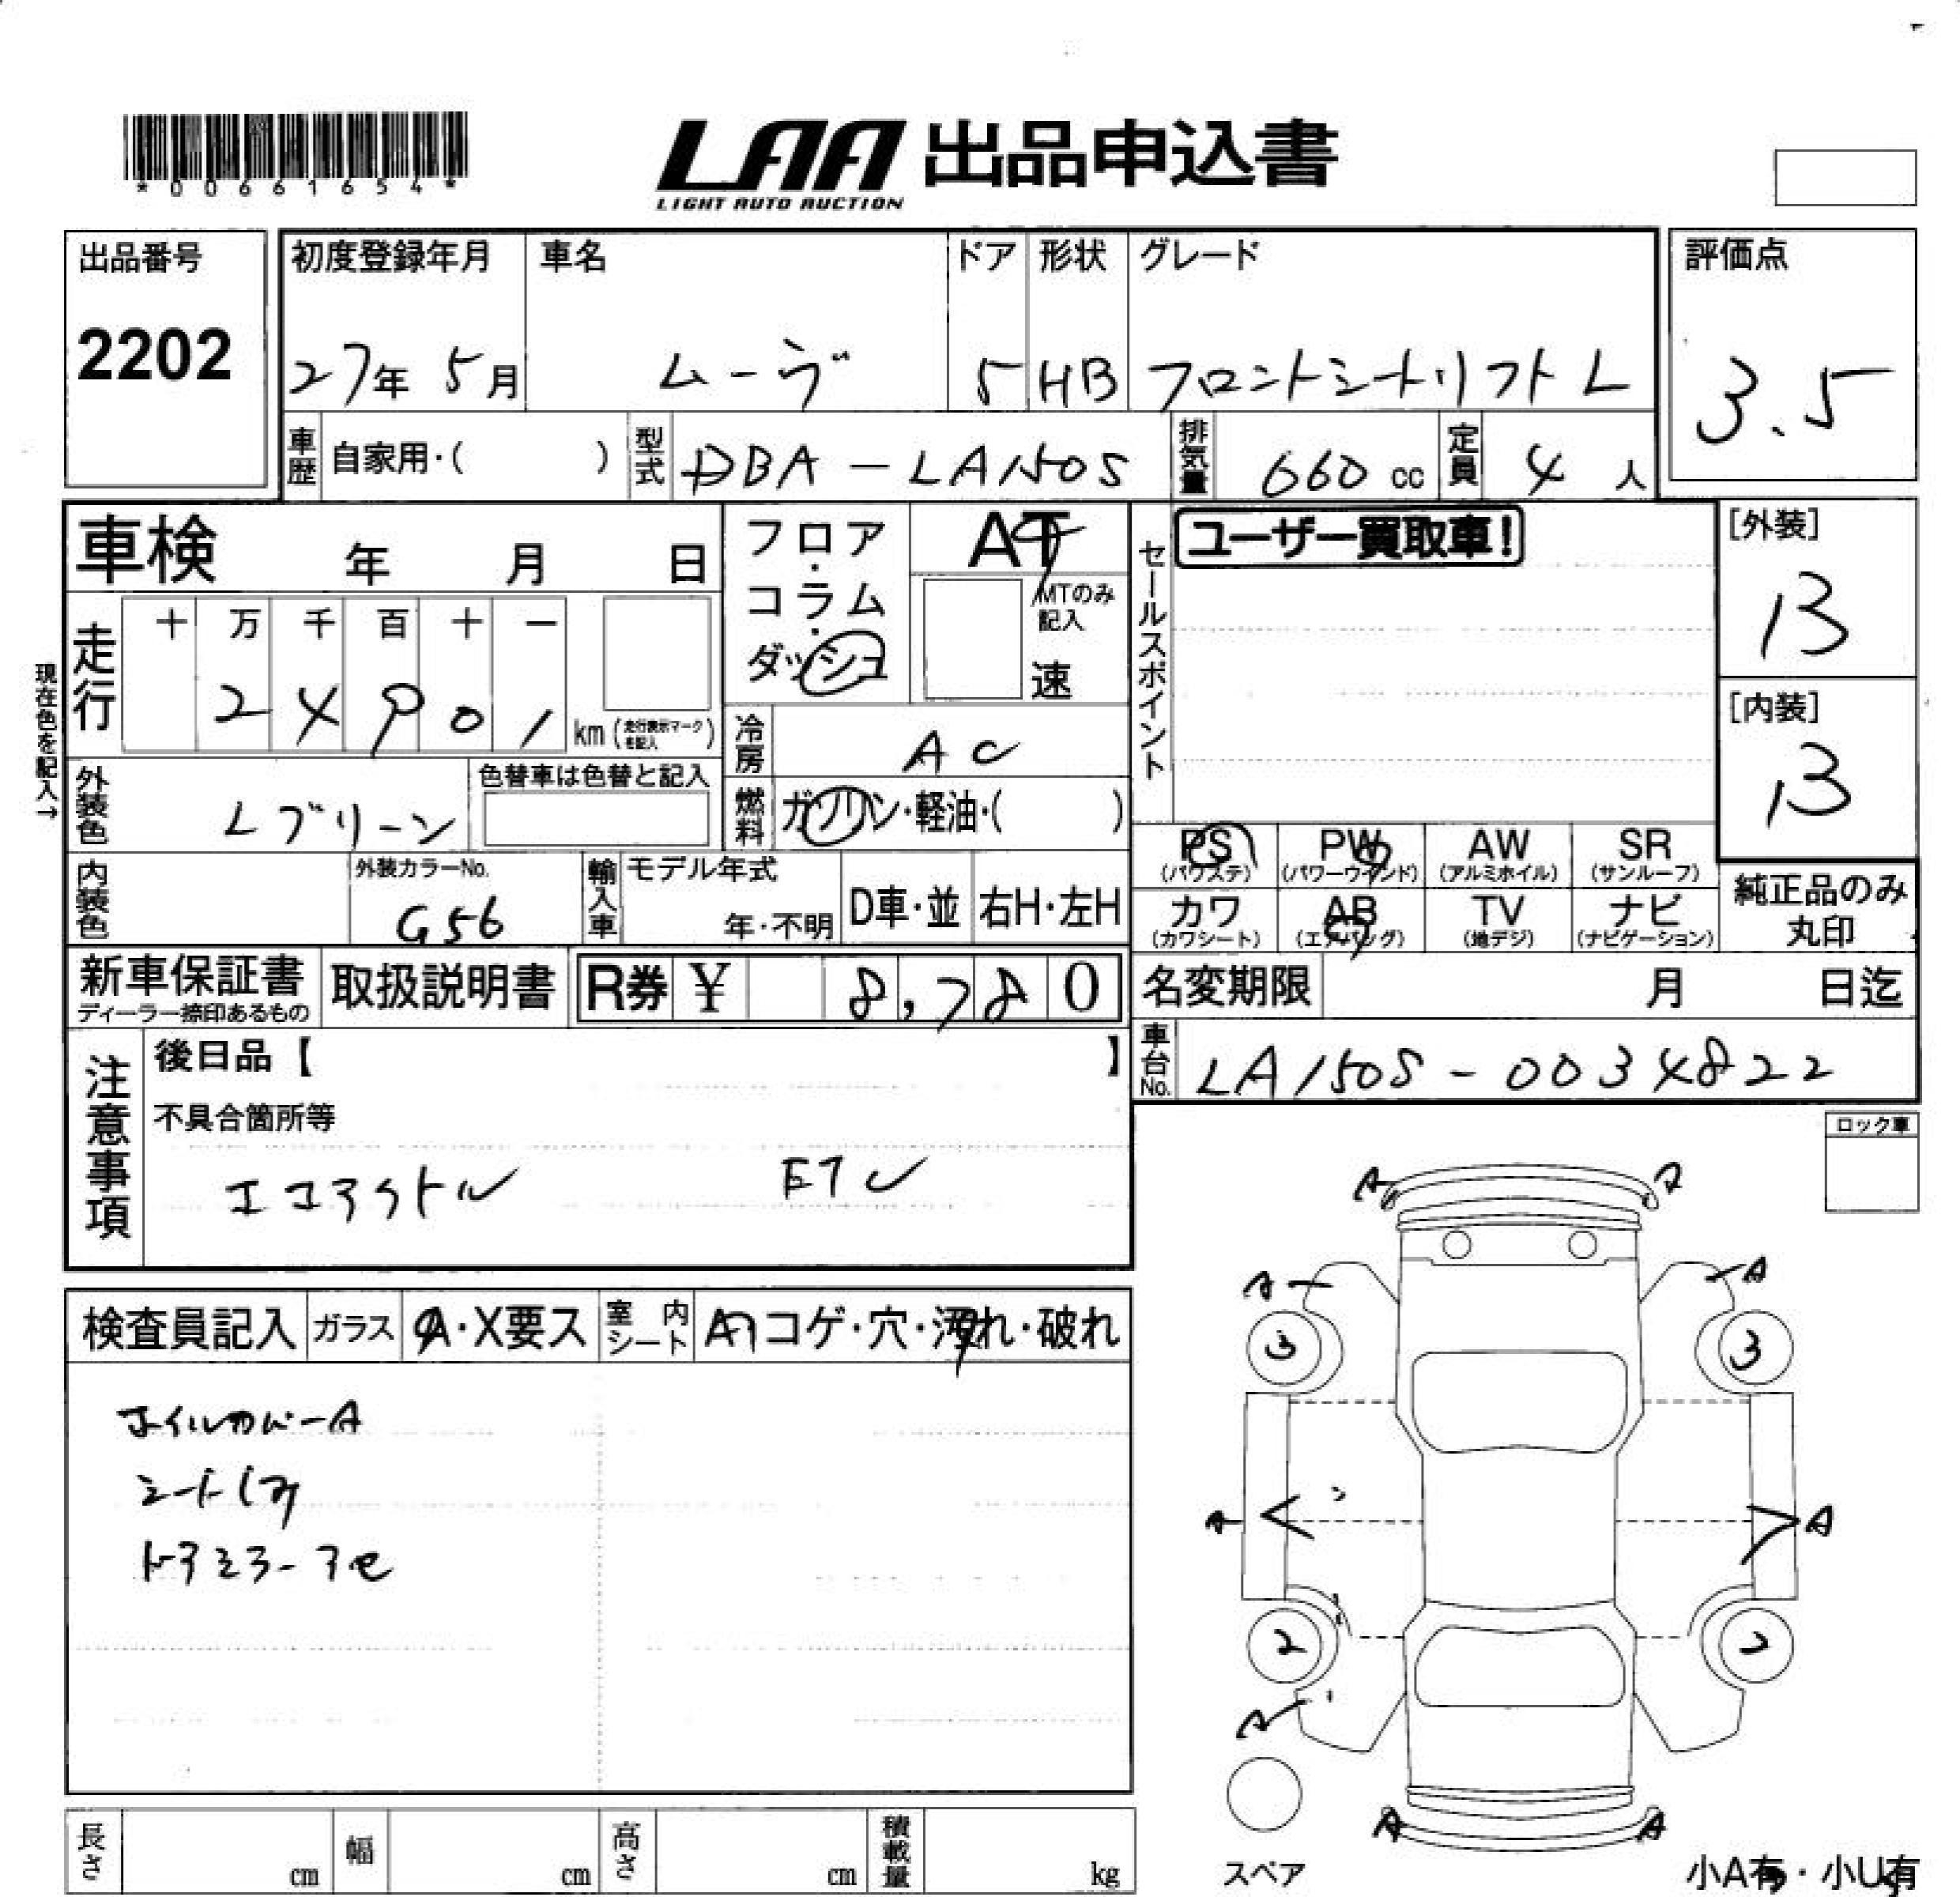 *00661654*
LAA 出品申込書
LIGHT AUTO AUCTION
出品番号
2202
初度登録年月
27年 5月
車名
ムーヴ
ドア
5
形状
HB
グレード
フロントシートリフト L
評価点
3.5
車歴
自家用・( )
型式
DBA-LA150S
排気量
660 cc
定員
4 人
車検 年 月 日
フロア・コラム・ダッシュ
AT
MTのみ記入
速
セールスポイント
ユーザー買取車!
[外装]
B
[内装]
B
現在色を記入→
走行
十 万 千 百 十 一
2 4 9 0 1
km (走行表示マークを記入)
冷房
AC
外装色
Lグリーン
色替車は色替と記入
燃料
ガソリン・軽油・( )
PS
(パワステ)
PW
(パワーウインド)
AW
(アルミホイル)
SR
(サンルーフ)
カワ
(カワシート)
AB
(エアバッグ)
TV
(地デジ)
ナビ
(ナビゲーション)
純正品のみ
丸印
内装色
外装カラーNo.
G56
輸入車
モデル年式
年・不明
D車・並
右H・左H
新車保証書
ディーラー捺印あるもの
取扱説明書
R券 ¥ 8,780
名変期限 月 日迄
車台No.
LA150S-0034822
注意事項
後日品【 】
不具合箇所等
エコアイドル ETC
ロック車
検査員記入
ガラス
A・X要ス
室内シート
コゲ・穴・汚れ・破れ
ホイルカバーA
シートシミ
ドアミラーA
A A
A A
3 3
A A
2
A
A A
スペア
小A有・小U有
長さ cm
幅 cm
高さ cm
積載量 kg